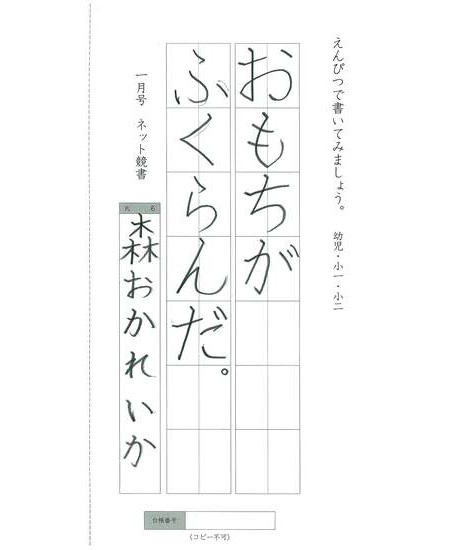 えんぴつで書いてみましょう。 幼児・小一・小二
おもちが
ふくらんだ。
一月号 ネット競書
氏名
森おかれいか
台帳番号
(コピー不可)